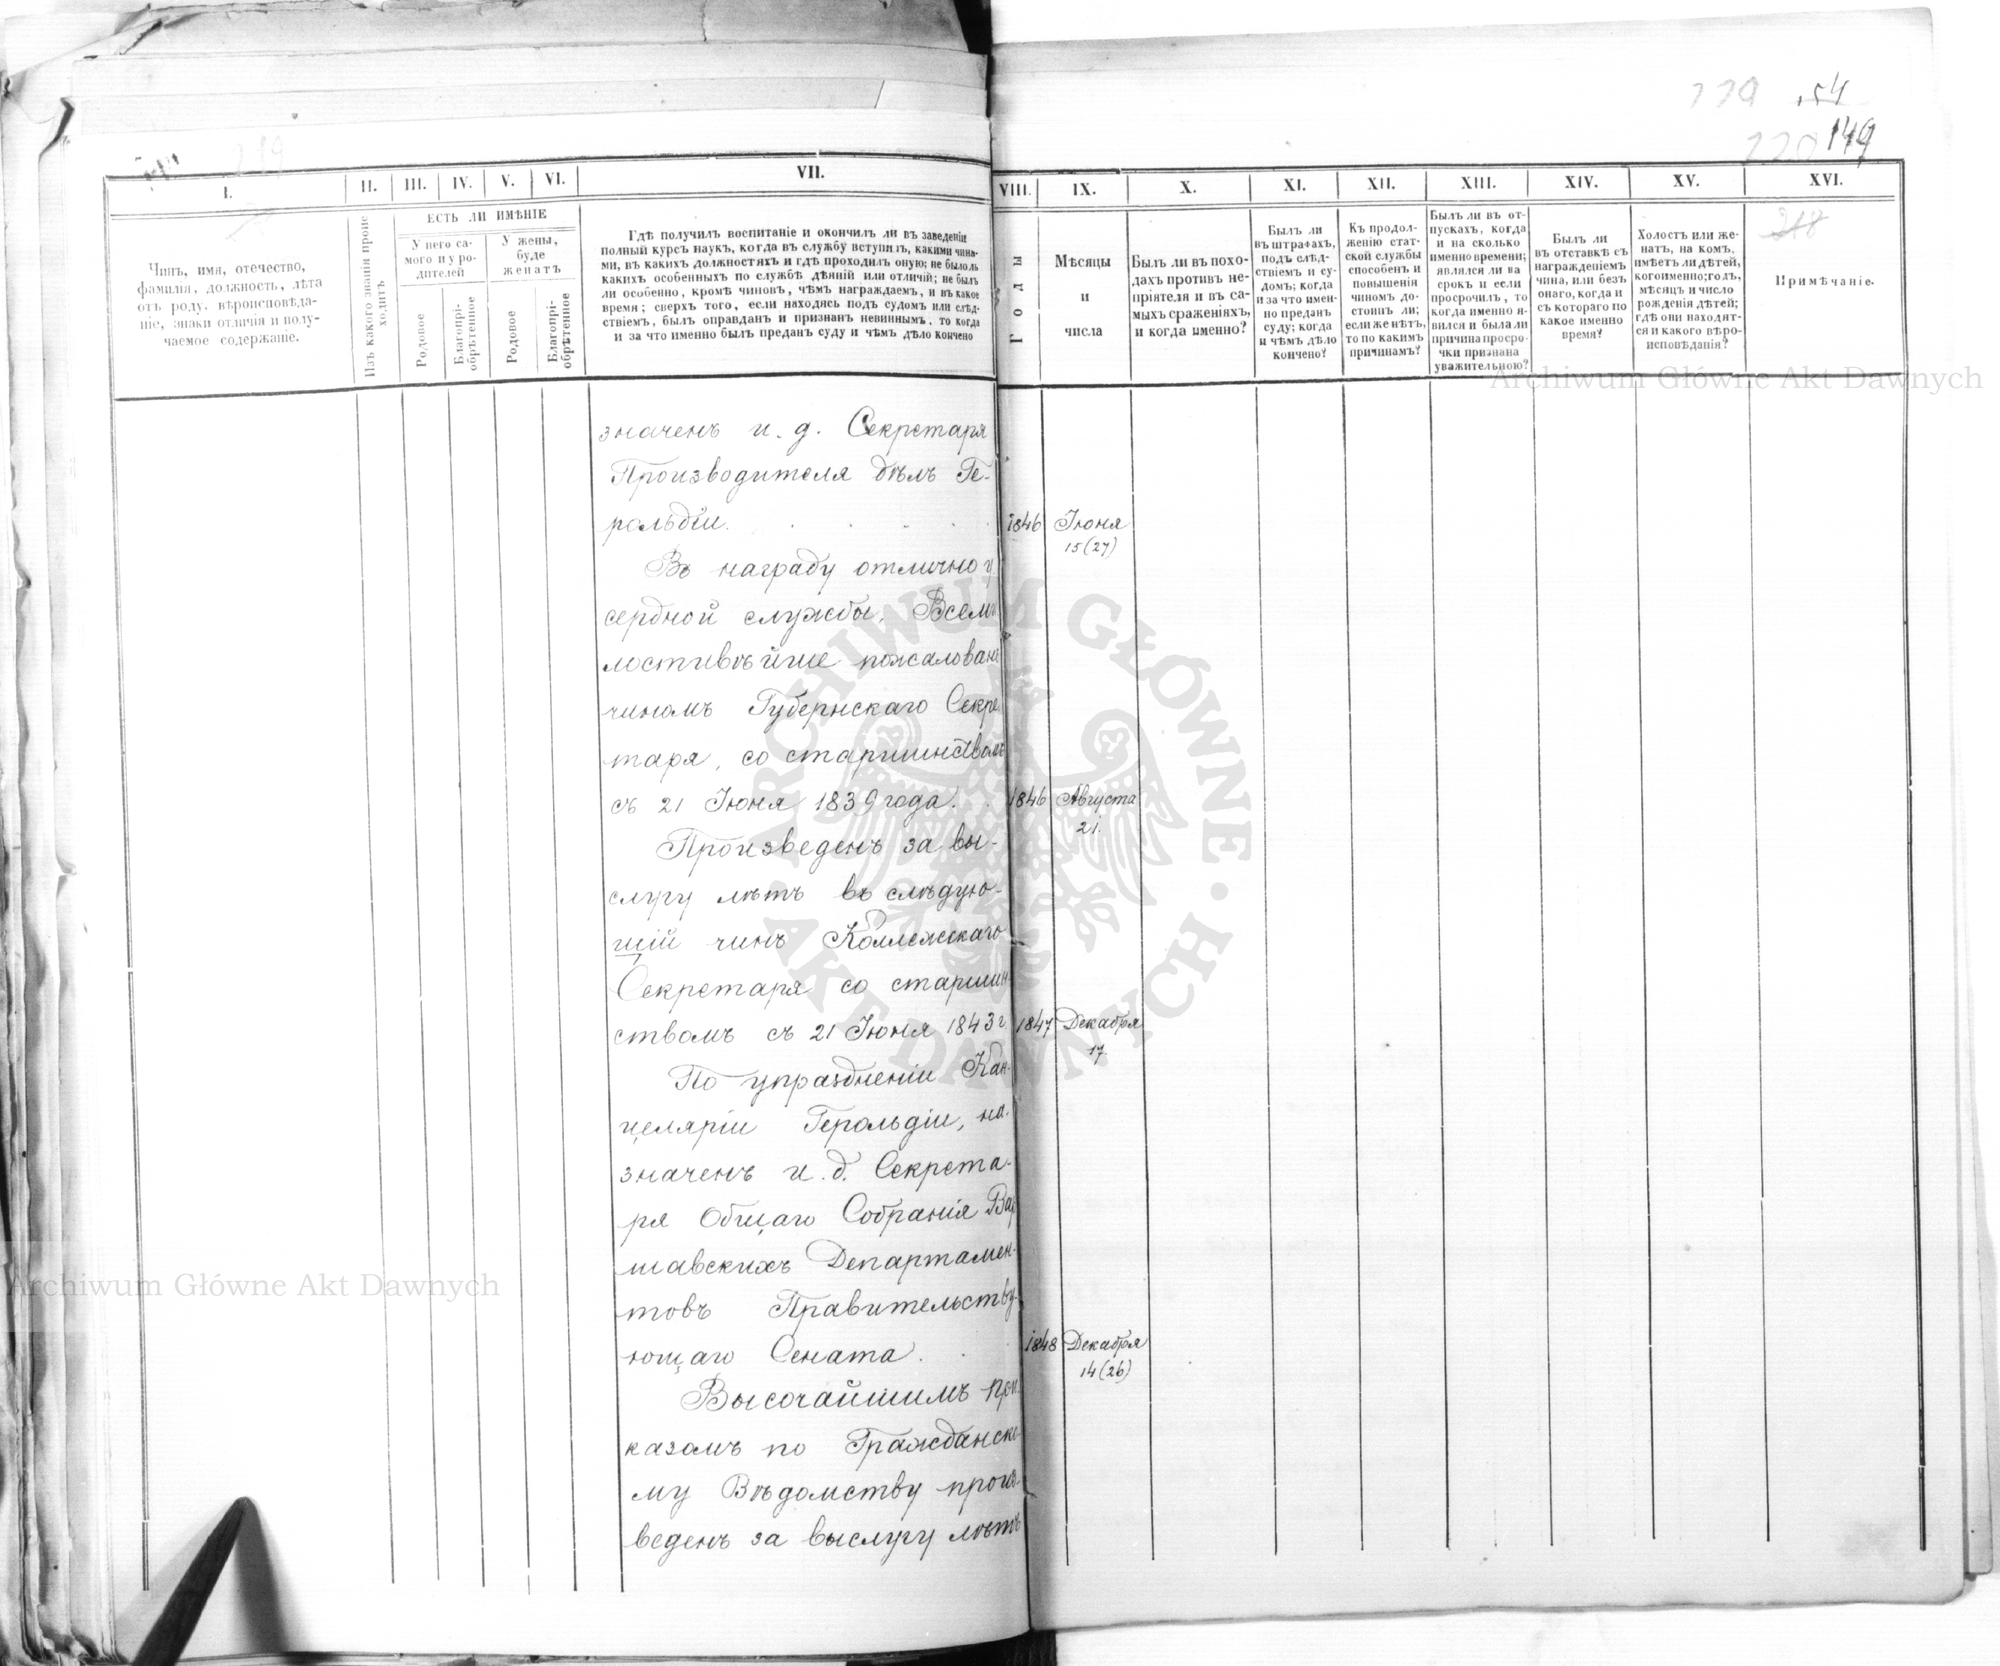 229 54
220 149
219
I.
II.
III.
IV.
V.
VI.
VII.
VIII.
IX.
X.
XI.
XII.
XIII.
XIV.
XV.
XVI.
Чинъ, имя, отечество,
фамилія, должность, лѣта
отъ роду, вѣроисповѣда-
ніе, знаки отличія и полу-
чаемое содержаніе.
Изъ какого званія проис
ходитъ
ЕСТЬ ЛИ ИМѢНІЕ
У него са-
мого и у ро-
дителей
У жены,
буде
женатъ
Родовое
Благопрі-
обрѣтенное
Родовое
Благопрі-
обрѣтенное
Гдѣ получилъ воспитаніе и окончилъ ли въ заведеніи
полный курсъ наукъ, когда въ службу вступилъ, какими чина-
ми, въ какихъ должностяхъ и гдѣ проходилъ оную; не было ль
какихъ особенныхъ по службѣ дѣяній или отличій; не былъ
ли особенно, кромѣ чиновъ, чѣмъ награждаемъ, и въ какое
время; сверхъ того, если находясь подъ судомъ или слѣд-
ствіемъ, былъ оправданъ и признанъ невиннымъ, то когда
и за что именно былъ преданъ суду и чѣмъ дѣло кончено
Годы
Мѣсяцы
и
числа
Былъ ли въ похо-
дахъ противъ не-
пріятеля и въ са-
мыхъ сраженіяхъ,
и когда именно?
Былъ ли
въ штрафахъ,
подъ слѣд-
ствіемъ и су-
домъ; когда
и за что имен-
но преданъ
суду; когда
и чѣмъ дѣло
кончено?
Къ продол-
женію стат-
ской службы
способенъ и
повышенія
чиномъ до-
стоинъ ли;
если же нѣтъ,
то по какимъ
причинамъ?
Былъ ли въ от-
пускахъ, когда
и на сколько
именно времени;
являлся ли на
срокъ и если
просрочилъ, то
когда именно я-
вился и была ли
причина просро-
чки признана
уважительною?
Былъ ли
въ отставкѣ съ
награжденіемъ
чина, или безъ
онаго, когда и
съ котораго по
какое именно
время?
Холостъ или же-
натъ, на комъ,
имѣетъ ли дѣтей,
кого именно; годъ,
мѣсяцъ и число
рожденія дѣтей;
гдѣ они находят-
ся и какого вѣро-
исповѣданія?
218
Примѣчаніе.
Archiwum Główne Akt Dawnych
значенъ и. д. Секретаря
Производителя дѣлъ Ге-
рольдіи. 1846 Іюня
15 (27)
Въ награду отлично у
сердной службы, Всеми
лостивѣйше пожалованъ
чиномъ Губернскаго Секре
таря, со старшинствомъ
съ 21 Іюня 1839 года. 1846 Августа
21.
Произведенъ за вы-
слугу лѣтъ въ слѣдую-
щій чинъ Коллежскаго
Секретаря со старшин-
ствомъ съ 21 Іюня 1843 г. 1847 Декабря
17.
По упраздненіи Кан-
целяріи Герольдіи, на-
значенъ и. д. Секрета-
ря Общаго Собранія Вар
шавскихъ Департамен-
товъ Правительству-
ющаго Сената. 1848 Декабря
14 (26)
Высочайшимъ при-
казомъ по Гражданско-
му Вѣдомству произ-
веденъ за выслугу лѣтъ
ARCHIWUM GŁÓWNE • AKT DAWNYCH •
Archiwum Główne Akt Dawnych